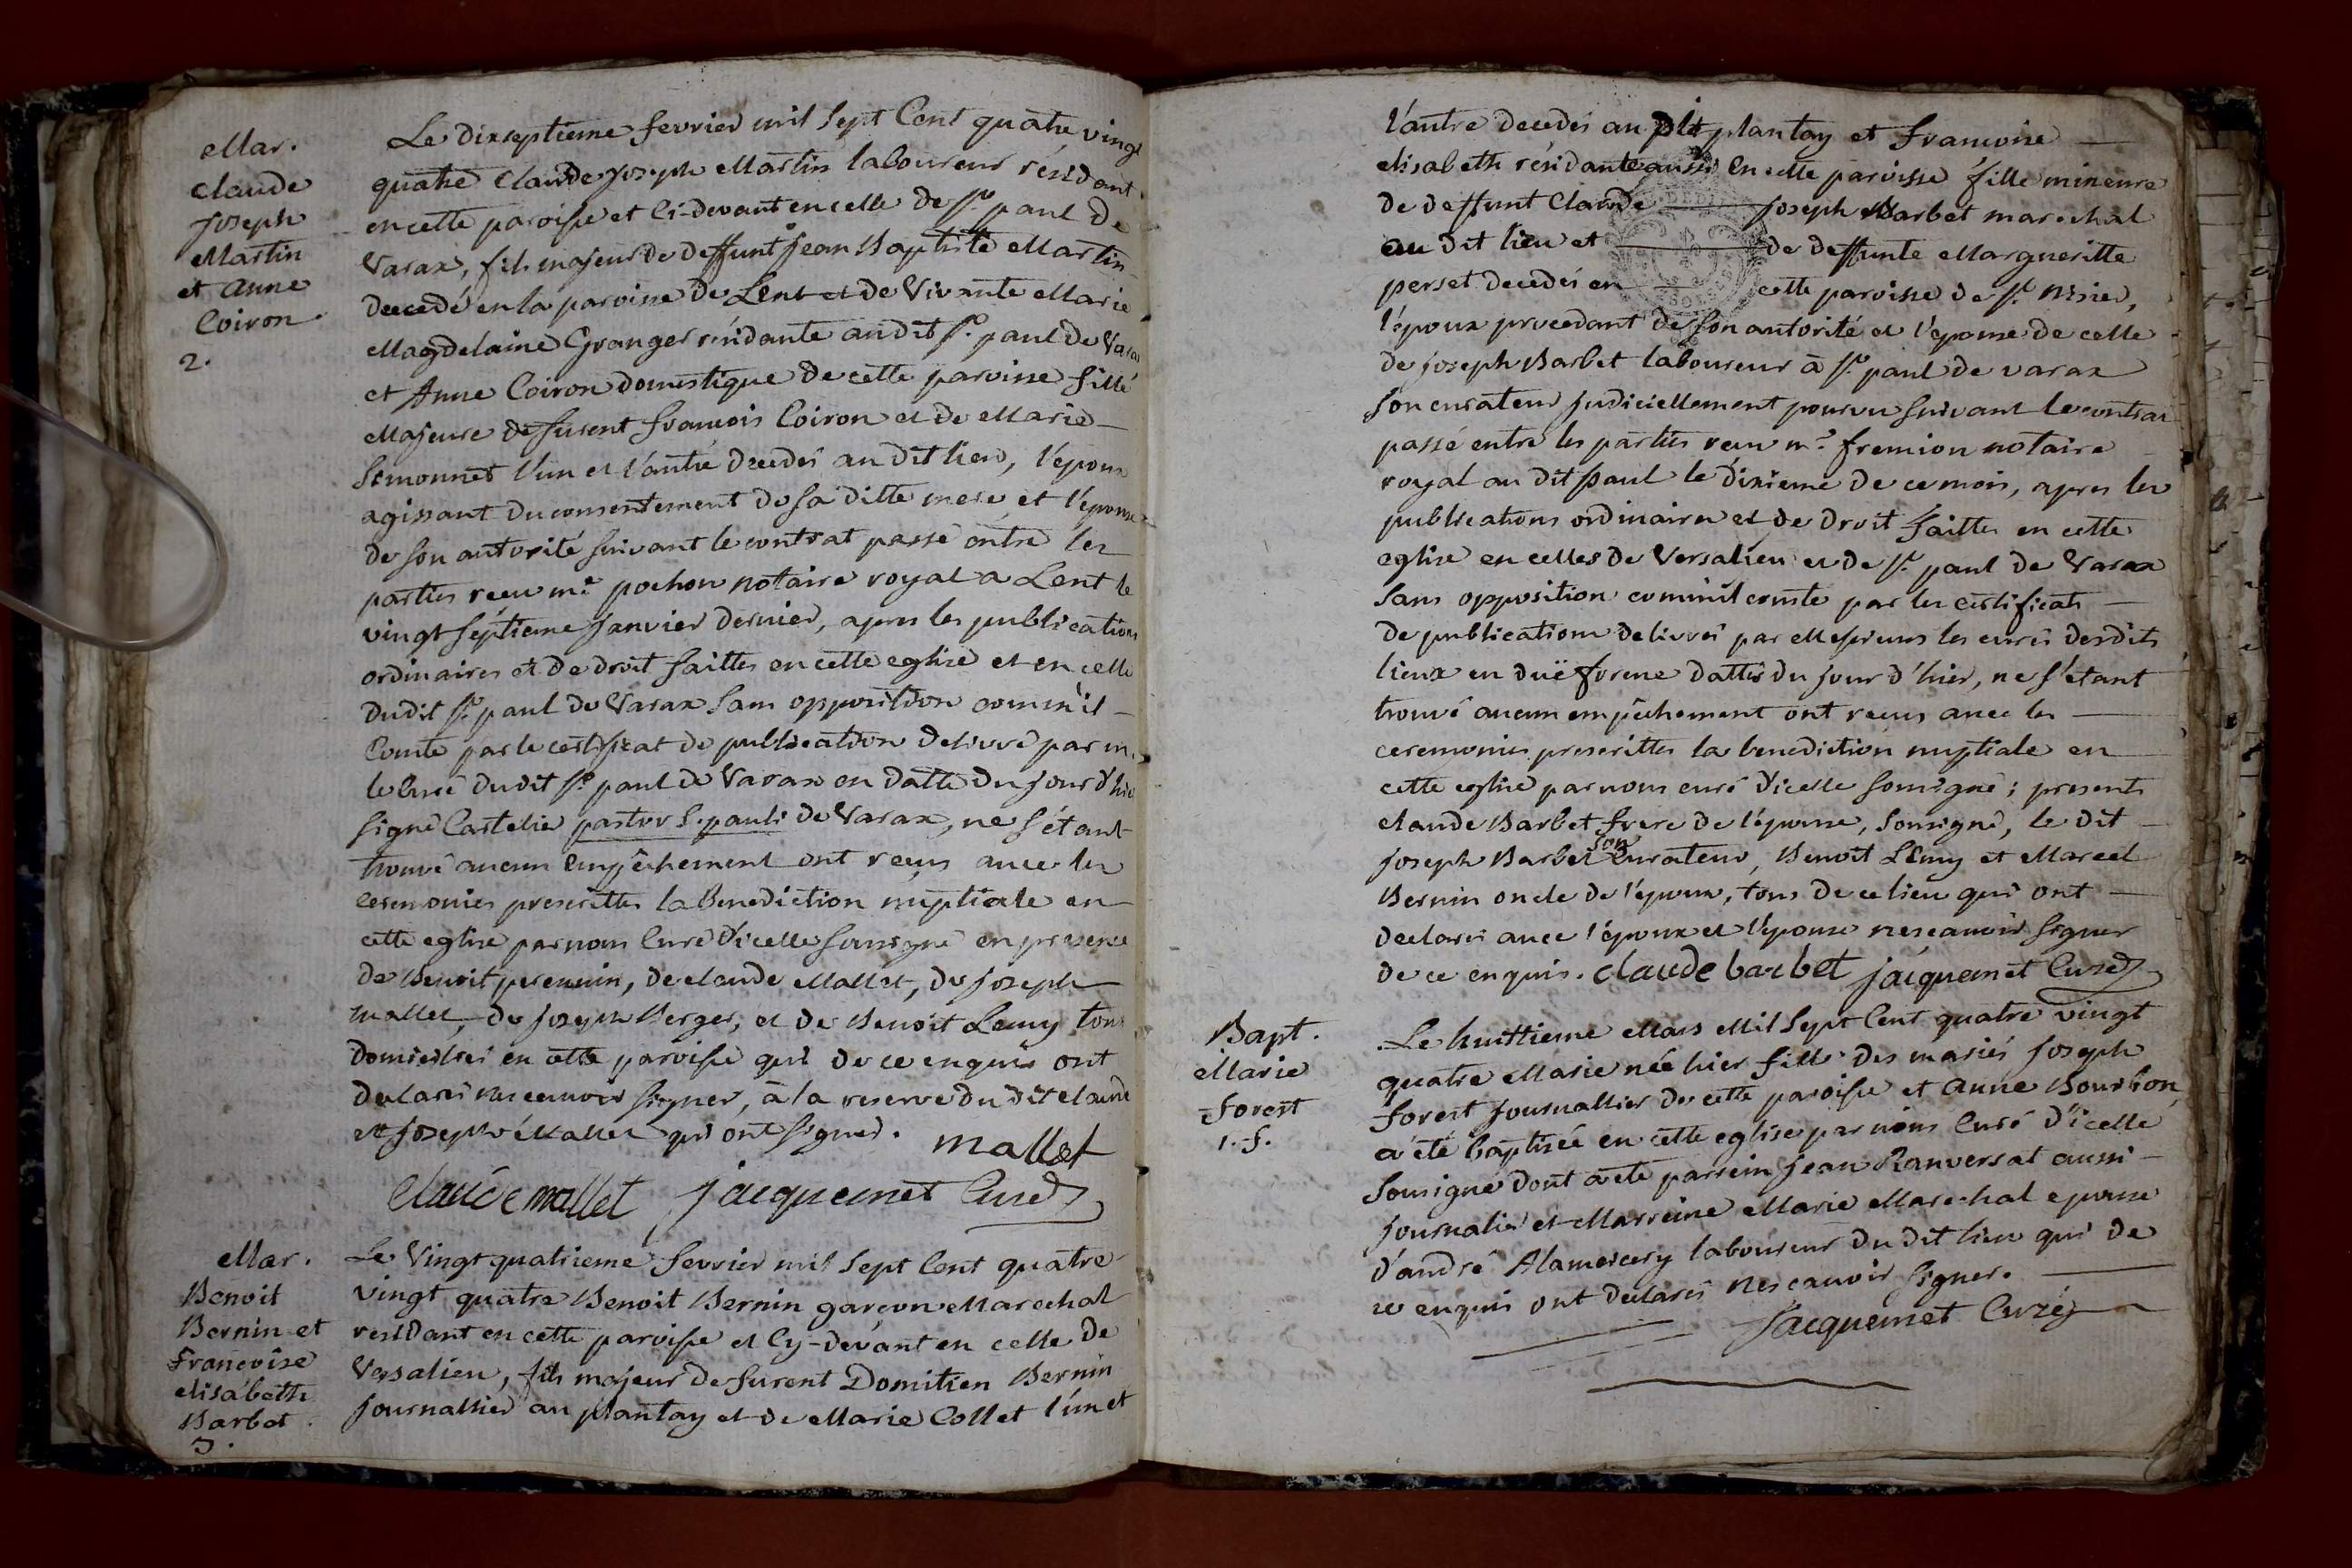 Mar.
claude
joseph
Martin
et anne
Coiron.
2.
Le dixseptieme fevrier mil sept Cent quatre vingt
quatre claude joseph Martin laboureur résidant
en cette paroisse et ci-devant en celle de st paul de
Varax, fils majeur de deffunt jean Baptiste Martin
decedé en la paroisse de Lent et de Vivante Marie
Magdelaine Granger résidante au dit st. paul de Varax
et Anne Coiron domestique de cette paroisse fille
Majeure de furent francois Coiron et de Marie
Simonnet l'un et l'autre decedés au dit lieu, l'époux
agissant du consentement de sa ditte mere, et l'épouse
de son autorité suivant le contrat passé entre les
parties recu me pochon notaire royal a Lent le
vingt séptieme janvier dernier, apres les publications
ordinaires et de droit faittes en cette eglise et en celle
dudit st. paul de Varax sans opposition comm'il
Conste par le certificat de publication delivré par m.
le Curé dudit st. paul de Varax en datte du jour d'hier
signé Castelier pastor S. pauli de Varax, ne s'étant
trouvé aucun empêchement ont recus avec les
ceremonies prescrittes la Benediction nuptiale en
cette eglise par nous Curé d'icelle soussigné en presence
de Benoit peremin, de claude Mallet, de joseph
mallet, de joseph Berger, et de Benoit Lemy tous
domiciliés en cette paroisse qui de ce enquis ont
declarés ne scauvoir signer, à la reserve du dit claude
et joseph Mallet qui ont signer. mallet
claude mallet jacquemet Curé
Mar.
Benoit
Bernin et
francoise
elisabeth
Barbet.
3.
Le Vingt quatrieme fevrier mil sept Cent quatre
vingt quatre Benoit Bernin garcon Marechal
residant en cette paroisse et Cy-devant en celle de
Versalieu, fils majeur de furent Domitien Bernin
journallier au plantay et de Marie Collet l'un et
l'autre decedés au plantay et francoise
elisabeth résidante aussi en cette paroisse fille mineure
de deffunt Claude joseph Barbet marechal
au dit lieu et de deffunte Margueritte
perset decedés en cette paroisse de st. nisier,
l'époux procedant de son autorité et l'épouse de celle
de joseph Barbet laboureur à st. paul de varax
son curateur judiciellement pourvu suivant le contrat
passé entre les parties recu me. fremion notaire
royal au dit st paul le dixieme de ce mois, apres les
publications ordinaires et de droit faittes en cette
eglise en celles de Versalieu et de st. paul de Varax
sans opposition comm'il conste par les certificats
de publications delivrés par Messieurs les curés desdits
lieux en duë forme dattés du jour d'hier, ne s'étant
trouvé aucun empêchement ont recus avec les
ceremonies prescrittes la benediction nuptiale en
cette eglise par nous curé d'icelle soussigné; presents
claude Barbet frere de l'épouse, soussigné, le dit
joseph Barbet son Curateur, Benoit Lemy et Marcel
Bernin oncle de l'époux, tous de ce lieu qui ont
declarés avec l'époux et l'épouse ne scavoir signer
de ce enquis. claude barbet jacquemet Curé
Bapt.
Marie
forest
1. f.
Le huittieme Mars Mil sept Cent quatre vingt
quatre Marie née hier fille des mariés joseph
forest journallier de cette paroisse et anne Bourbon
a été baptisée en cette eglise par nous Curé d'icelle
soussigné dont a été parrein jean Ranversat aussi
journalier et Marreine Marie Marechal epouse
d'andré Alamercery laboureur du dit lieu qui de
ce enquis ont declarés ne scauvoir signer.
jacquemet Curé